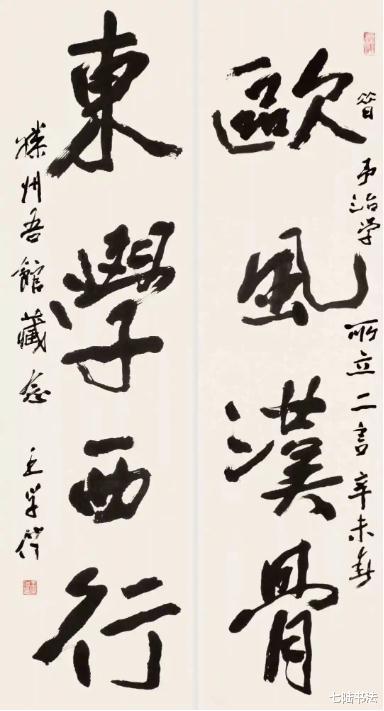 歐風漢骨
昔 予治學 所立二書 辛未春
東學西行
滕州吾館藏念 王學仲
七陆书法